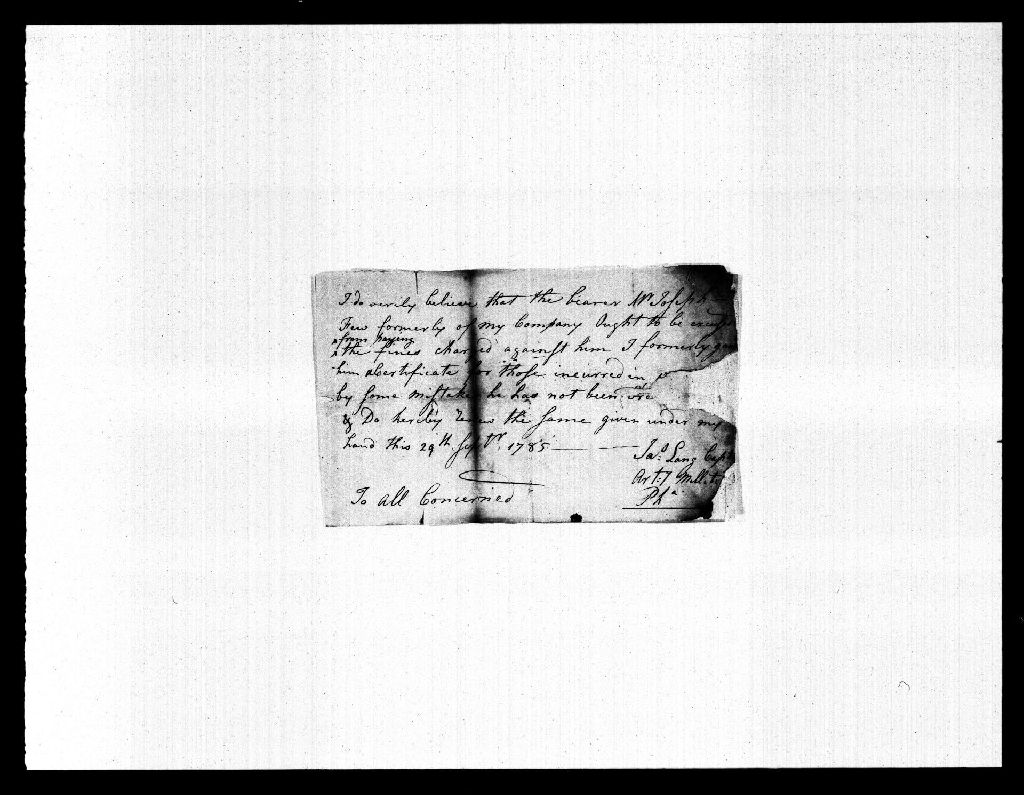 I do verily believe that the bearer Mr. Joseph
Few formerly of my Company Ought to be
from paying
the fines charged against him I formerly
him a Certificate for those incurred in
by some Mistake he has not been
& Do hereby Renew the same given under my
hand this 29th. Septr. 1785
Jas. Lang Capt
Arty Milla.
Pha
To all Concerned